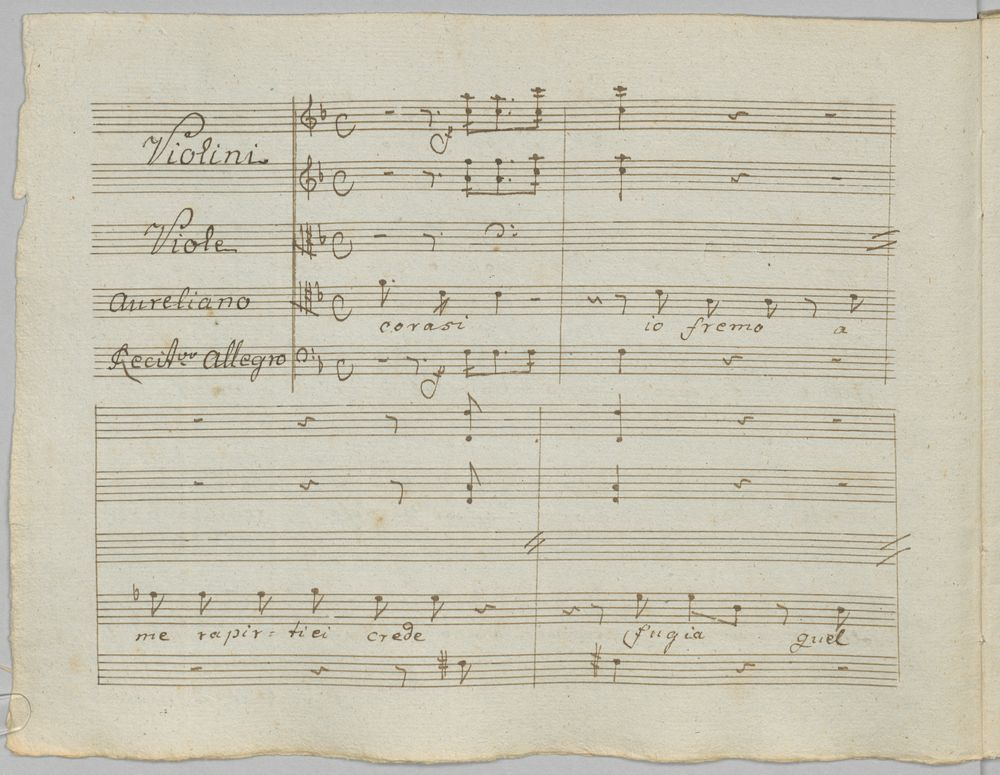 Violini
Viole
Aureliano
corasi io fremo a
Recit.vo Allegro
me rapir-tiei crede fugia quel